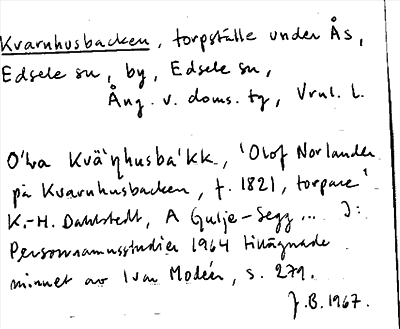 Kvarnhusbacken, torpställe under Ås,
Edsele sn, by, Edsele sn,
Ång. v. doms. tg, Vrnl. l.
O'lɷa Kvä`ŋhusba`kk, 'Olof Norlander
på Kvarnhusbacken, f. 1821, torpare'
K.-H. Dahlstedt, A Gulje-Segg... I:
Personnamnsstudier 1964 tillägnade
minnet av Ivar Modéer, s. 279.
J.B. 1967.